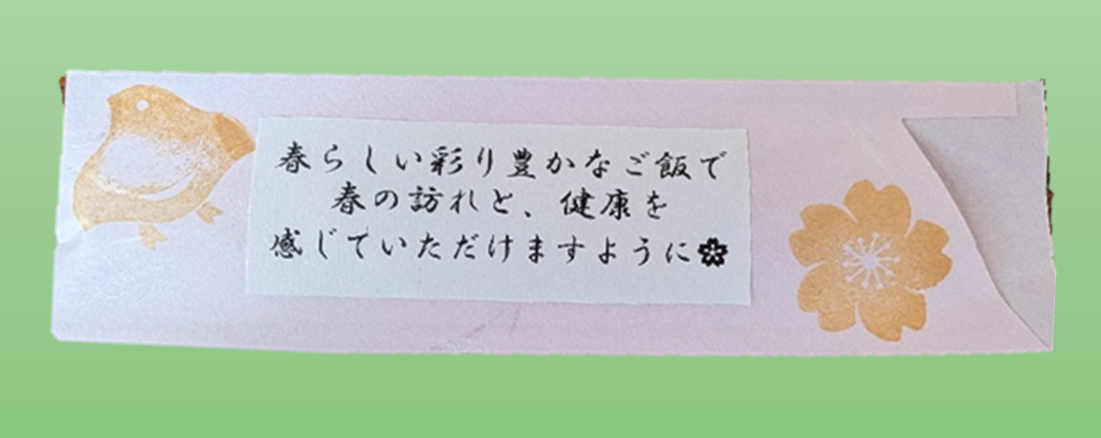 春らしい彩り豊かなご飯で
春の訪れと、健康を
感じていただけますように🌸